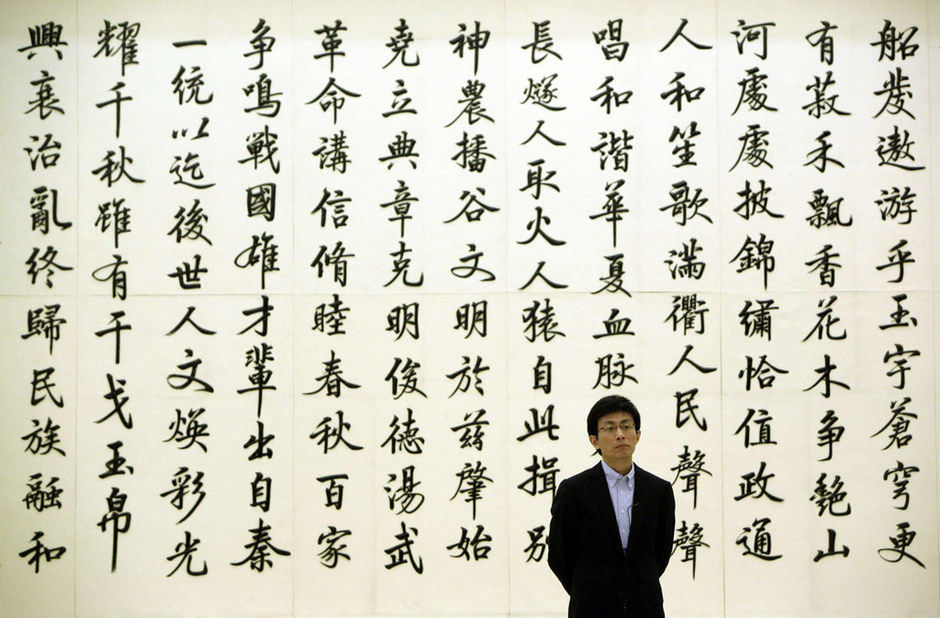 船發遨游乎玉宇蒼穹更
有菽禾飄香花木争艷山
河處處披錦繡恰值政通
人和笙歌滿衢人民聲聲
唱和諧華夏血脉
長燧人取火人猿自此揖别
神農播谷文明於兹肇始
堯立典章克明俊德湯武
革命講信脩睦春秋百家
争鳴戰國雄才輩出自秦
一統以迄後世人文焕彩光
耀千秋雖有干戈玉帛
興衰治亂終歸民族融和